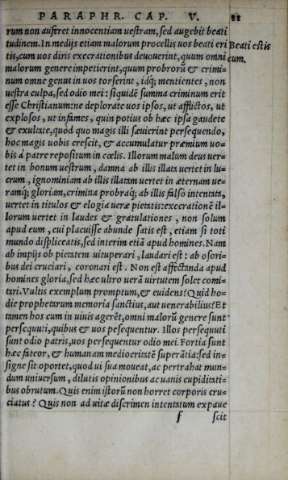 PARAPHR. CAP. V.
rum non auferet innocentiam uestram, sed augebit beati
tudinem. In medijs etiam malorum procellis uos beati eri
Beati estis
tis, cum uos diris execrationibus deuouerint, quum omni
cum.
malorum genere impetierint, quum probrorũ & crimi=
num omne genus in uos torserint, idq; mentientes, non
uestra culpa, sed odio mei: siquidẽ summa criminum erit
esse Christianum: ne deplorate uos ipsos, ut afflictos, ut
explosos, ut infames, quin potius ob hæc ipsa gaudete
& exultate, quod quo magis illi sæuierint persequendo,
hoc magis uobis crescit, & accumulatur præmium uo=
bis à patre repositum in cœlis. Illorum malum deus uer=
tet in bonum uestrum, damna ab illis illata uertet in lu=
crum, ignominiam ab illis illatam uertet in æternam ue=
ramq; gloriam, crimina probraq; ab illis falsò intentata,
uertet in titulos & elogia ueræ pietatis: execrationẽ il=
lorum uertet in laudes & gratulationes, non solum
apud eum, cui placuisse abunde satis est, etiam si toti
mundo displiceatis, sed interim etiã apud homines. Nam
ab impijs ob pietatem uituperari, laudari est: ab osori=
bus dei cruciari, coronari est. Non est affectanda apud
homines gloria, sed hæc ultro uerã uirtutem solet comi=
tari. Vultis exemplum promptum, & euidens? Quid ho=
die prophetarum memoria sanctius, aut uenerabilius? Et
tamen hos cum in uiuis agerẽt, omni malorũ genere sunt
persequuti, quibus & uos pesequentur. Illos persequuti
sunt odio patris, uos persequentur odio mei. Fortia sunt
hæc fateor, & humanam mediocritatẽ superãtia: sed in=
signe sit oportet, quod ui sua moueat, ac pertrahat mun=
dum uniuersum, dilutis opinionibus ac uanis cupiditati=
bus obrutum. Quis enim istorũ non horret corporis cru=
ciatus? Quis non ad uitæ discrimen intentatum expaue
f scit